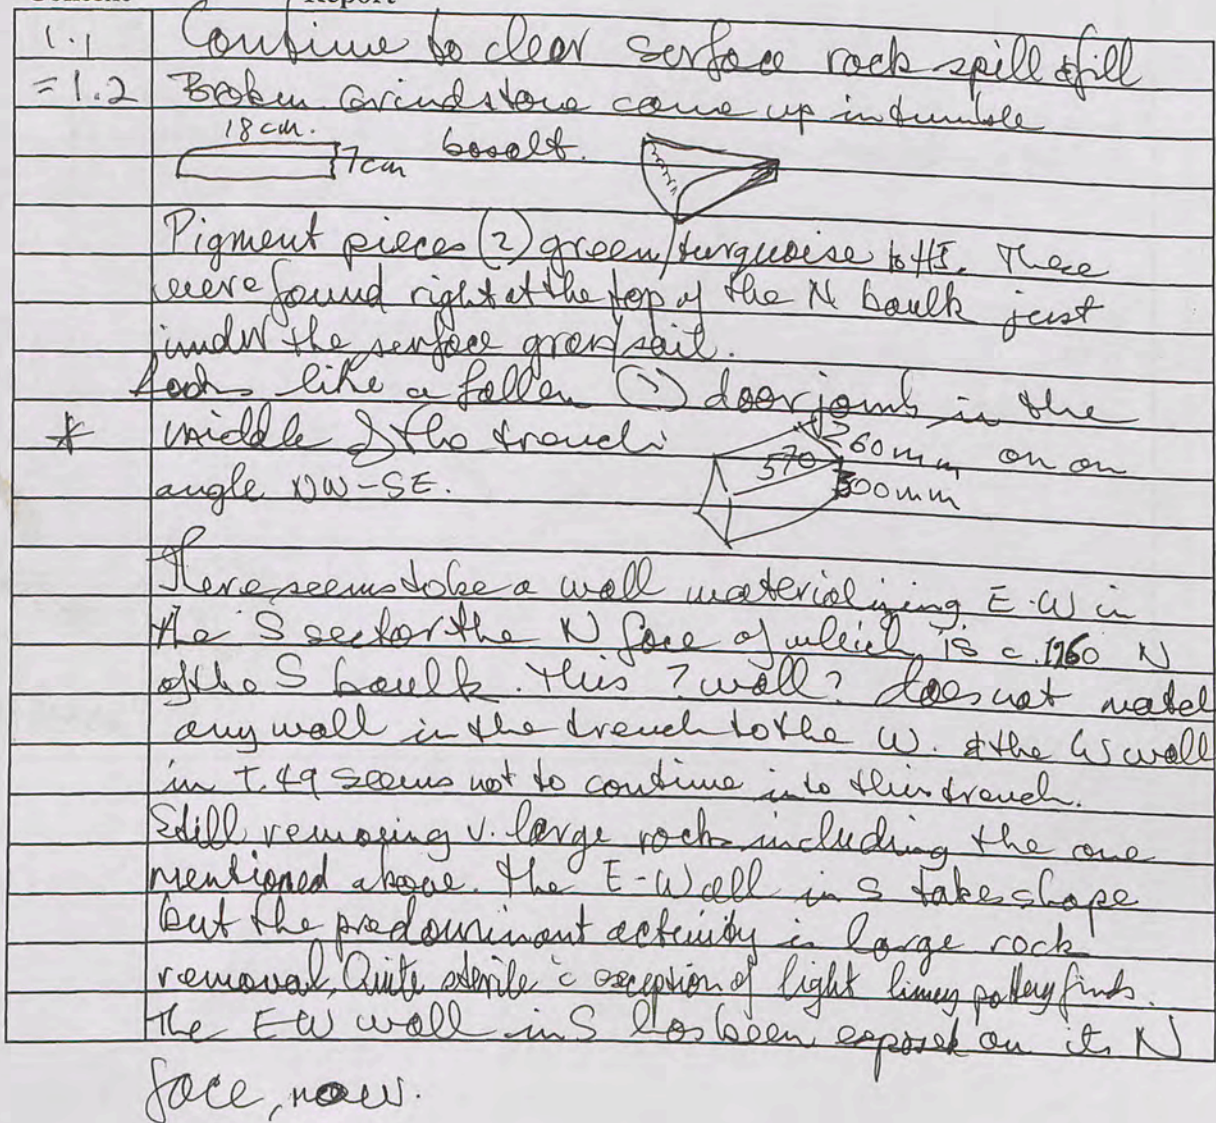 Report
1.1 Continue to clear surface rock spill & fill
= 1.2 Broken Grindstone came up in tumble
18 cm. 7 cm basalt.
Pigment pieces (2) green/turquoise to HI. These
were found right at the top of the N baulk just
under the surface grass/soil.
Looks like a fallen (?) door jamb in the
* middle of the trench 570 260 mm on an
angle NW-SE. 300 mm
There seems to be a wall materializing E-W in
the S sector the N face of which is c. 1960 N
of the S baulk. This ? wall? does not match
any wall in the trench to the W. & the wall
in T.49 seems not to continue into this trench.
Still removing v. large rock including the one
mentioned above. The E-Wall in S takes shape
but the predominant activity is large rock
removal. Quite sterile c̄ exception of light limey pottery finds.
The EW wall in S has been exposed on its N
face, now.